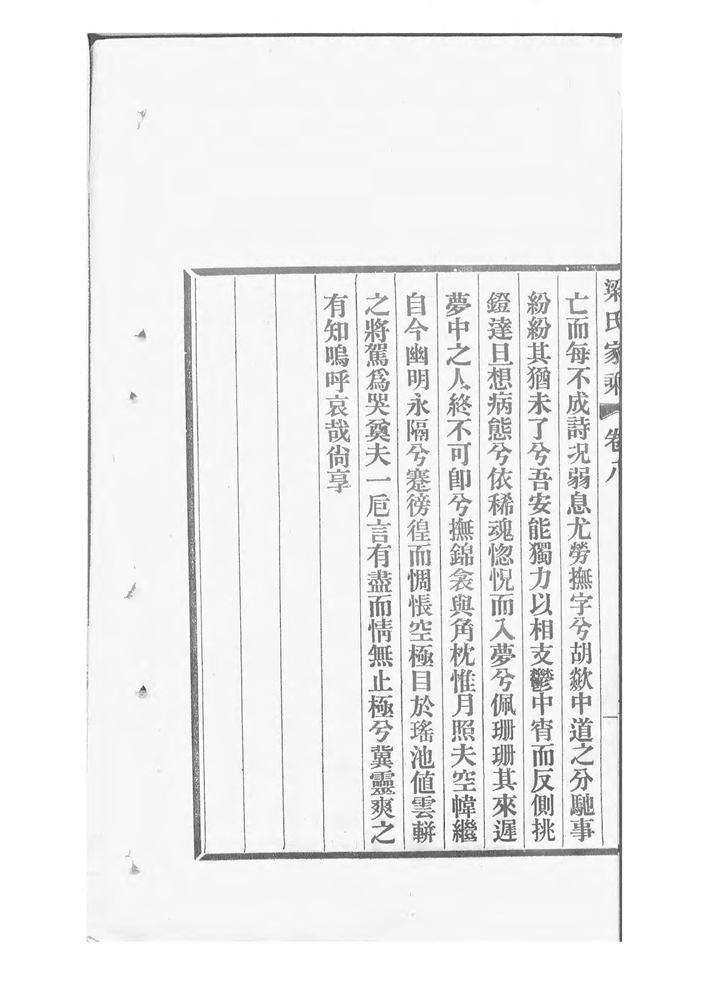 梁氏家乘 卷八
亡而每不成詩况弱息尤勞撫字兮胡歘中道之分馳事
紛紛其猶未了兮吾安能獨力以相支鬱中宵而反側挑
鐙達旦想病態兮依稀魂惚怳而入夢兮佩珊珊其來遲
夢中之人終不可卽兮撫錦衾與角枕惟月照夫空幃繼
自今幽明永隔兮蹇徬徨而惆悵空極目於瑤池値雲輧
之將駕爲哭奠夫一卮言有盡而情無止極兮冀靈爽之
有知嗚呼哀哉尙享